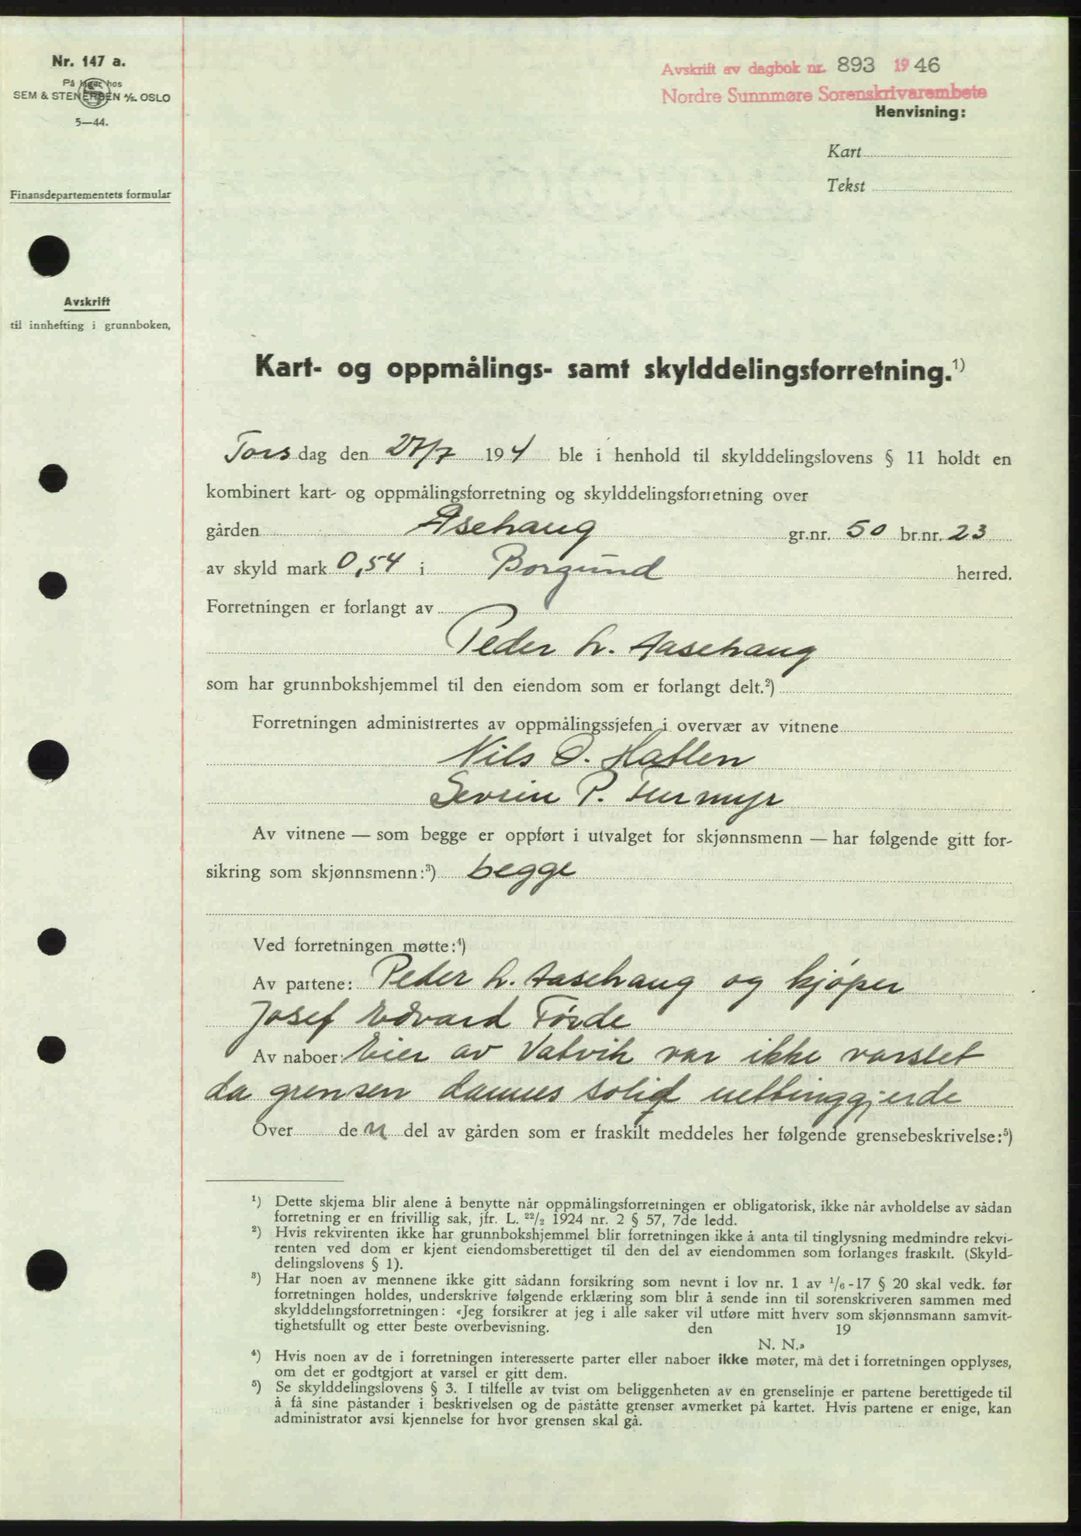 Nr. 147 a.
På lager hos
SEM & STENERSEN A/S OSLO
5—44.
Finansdepartementets formular
Avskrift
til innhefting i grunnboken,
Avskrift av dagbok nr. 893 1946
Nordre Sunnmøre Sorenskrivarembete
Henvisning:
Kart
Tekst
Kart- og oppmålings- samt skylddelingsforretning.¹)
Torsdag den 27/7 194 ble i henhold til skylddelingslovens § 11 holdt en
kombinert kart- og oppmålingsforretning og skylddelingsforretning over
gården Åsehaug gr.nr. 50 br.nr. 23
av skyld mark 0,54 i Borgund herred.
Forretningen er forlangt av
Peder L. Aasehaug
som har grunnbokshjemmel til den eiendom som er forlangt delt.²)
Forretningen administrertes av oppmålingssjefen i overvær av vitnene
Nils O. Hatlen
Severin P. Furmyr
Av vitnene — som begge er oppført i utvalget for skjønnsmenn — har følgende gitt for-
sikring som skjønnsmenn:³) begge
Ved forretningen møtte:⁴)
Av partene: Peder L. Aasehaug og kjøper
Josef Edvard Førde
Av naboer: Eier av Vatvik var ikke varslet
da grensen dannes solid nettinggjerde
Over den del av gården som er fraskilt meddeles her følgende grensebeskrivelse:⁵)
¹) Dette skjema blir alene å benytte når oppmålingsforretningen er obligatorisk, ikke når avholdelse av sådan
forretning er en frivillig sak, jfr. L. ²²/₂ 1924 nr. 2 § 57, 7de ledd.
²) Hvis rekvirenten ikke har grunnbokshjemmel blir forretningen ikke å anta til tinglysning medmindre rekvi-
renten ved dom er kjent eiendomsberettiget til den del av eiendommen som forlanges fraskilt. (Skyld-
delingslovens § 1).
³) Har noen av mennene ikke gitt sådann forsikring som nevnt i lov nr. 1 av ¹/₆-17 § 20 skal vedk. før
forretningen holdes, underskrive følgende erklæring som blir å sende inn til sorenskriveren sammen med
skylddelingsforretningen: «Jeg forsikrer at jeg i alle saker vil utføre mitt hverv som skjønnsmann samvit-
tighetsfullt og etter beste overbevisning. den 19
N. N.»
⁴) Hvis noen av de i forretningen interesserte parter eller naboer ikke møter, må det i forretningen opplyses,
om det er godtgjort at varsel er gitt dem.
⁵) Se skylddelingslovens § 3. I tilfelle av tvist om beliggenheten av en grenselinje er partene berettigede til
å få sine påstander i beskrivelsen og de påståtte grenser avmerket på kartet. Hvis partene er enige, kan
administrator avsi kjennelse for hvor grensen skal gå.